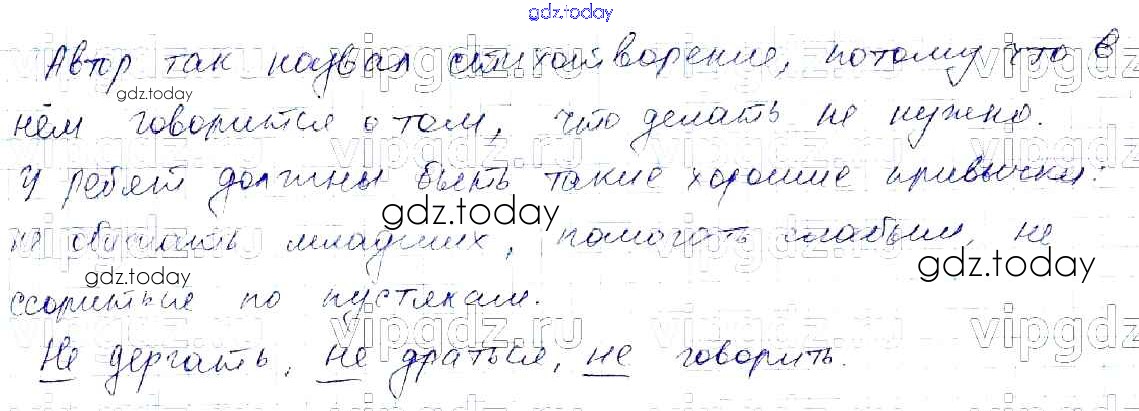 gdz.today
Автор так назвал стихотворение, потому что в
gdz.today
нём говорится о том, что делать не нужно.
У ребят должны быть такие хорошие привычки:
gdz.today
не обижать младших, помогать слабым, не
gdz.today
gdz.today
ссориться по пустякам.
Не дергать, не драться, не говорить.